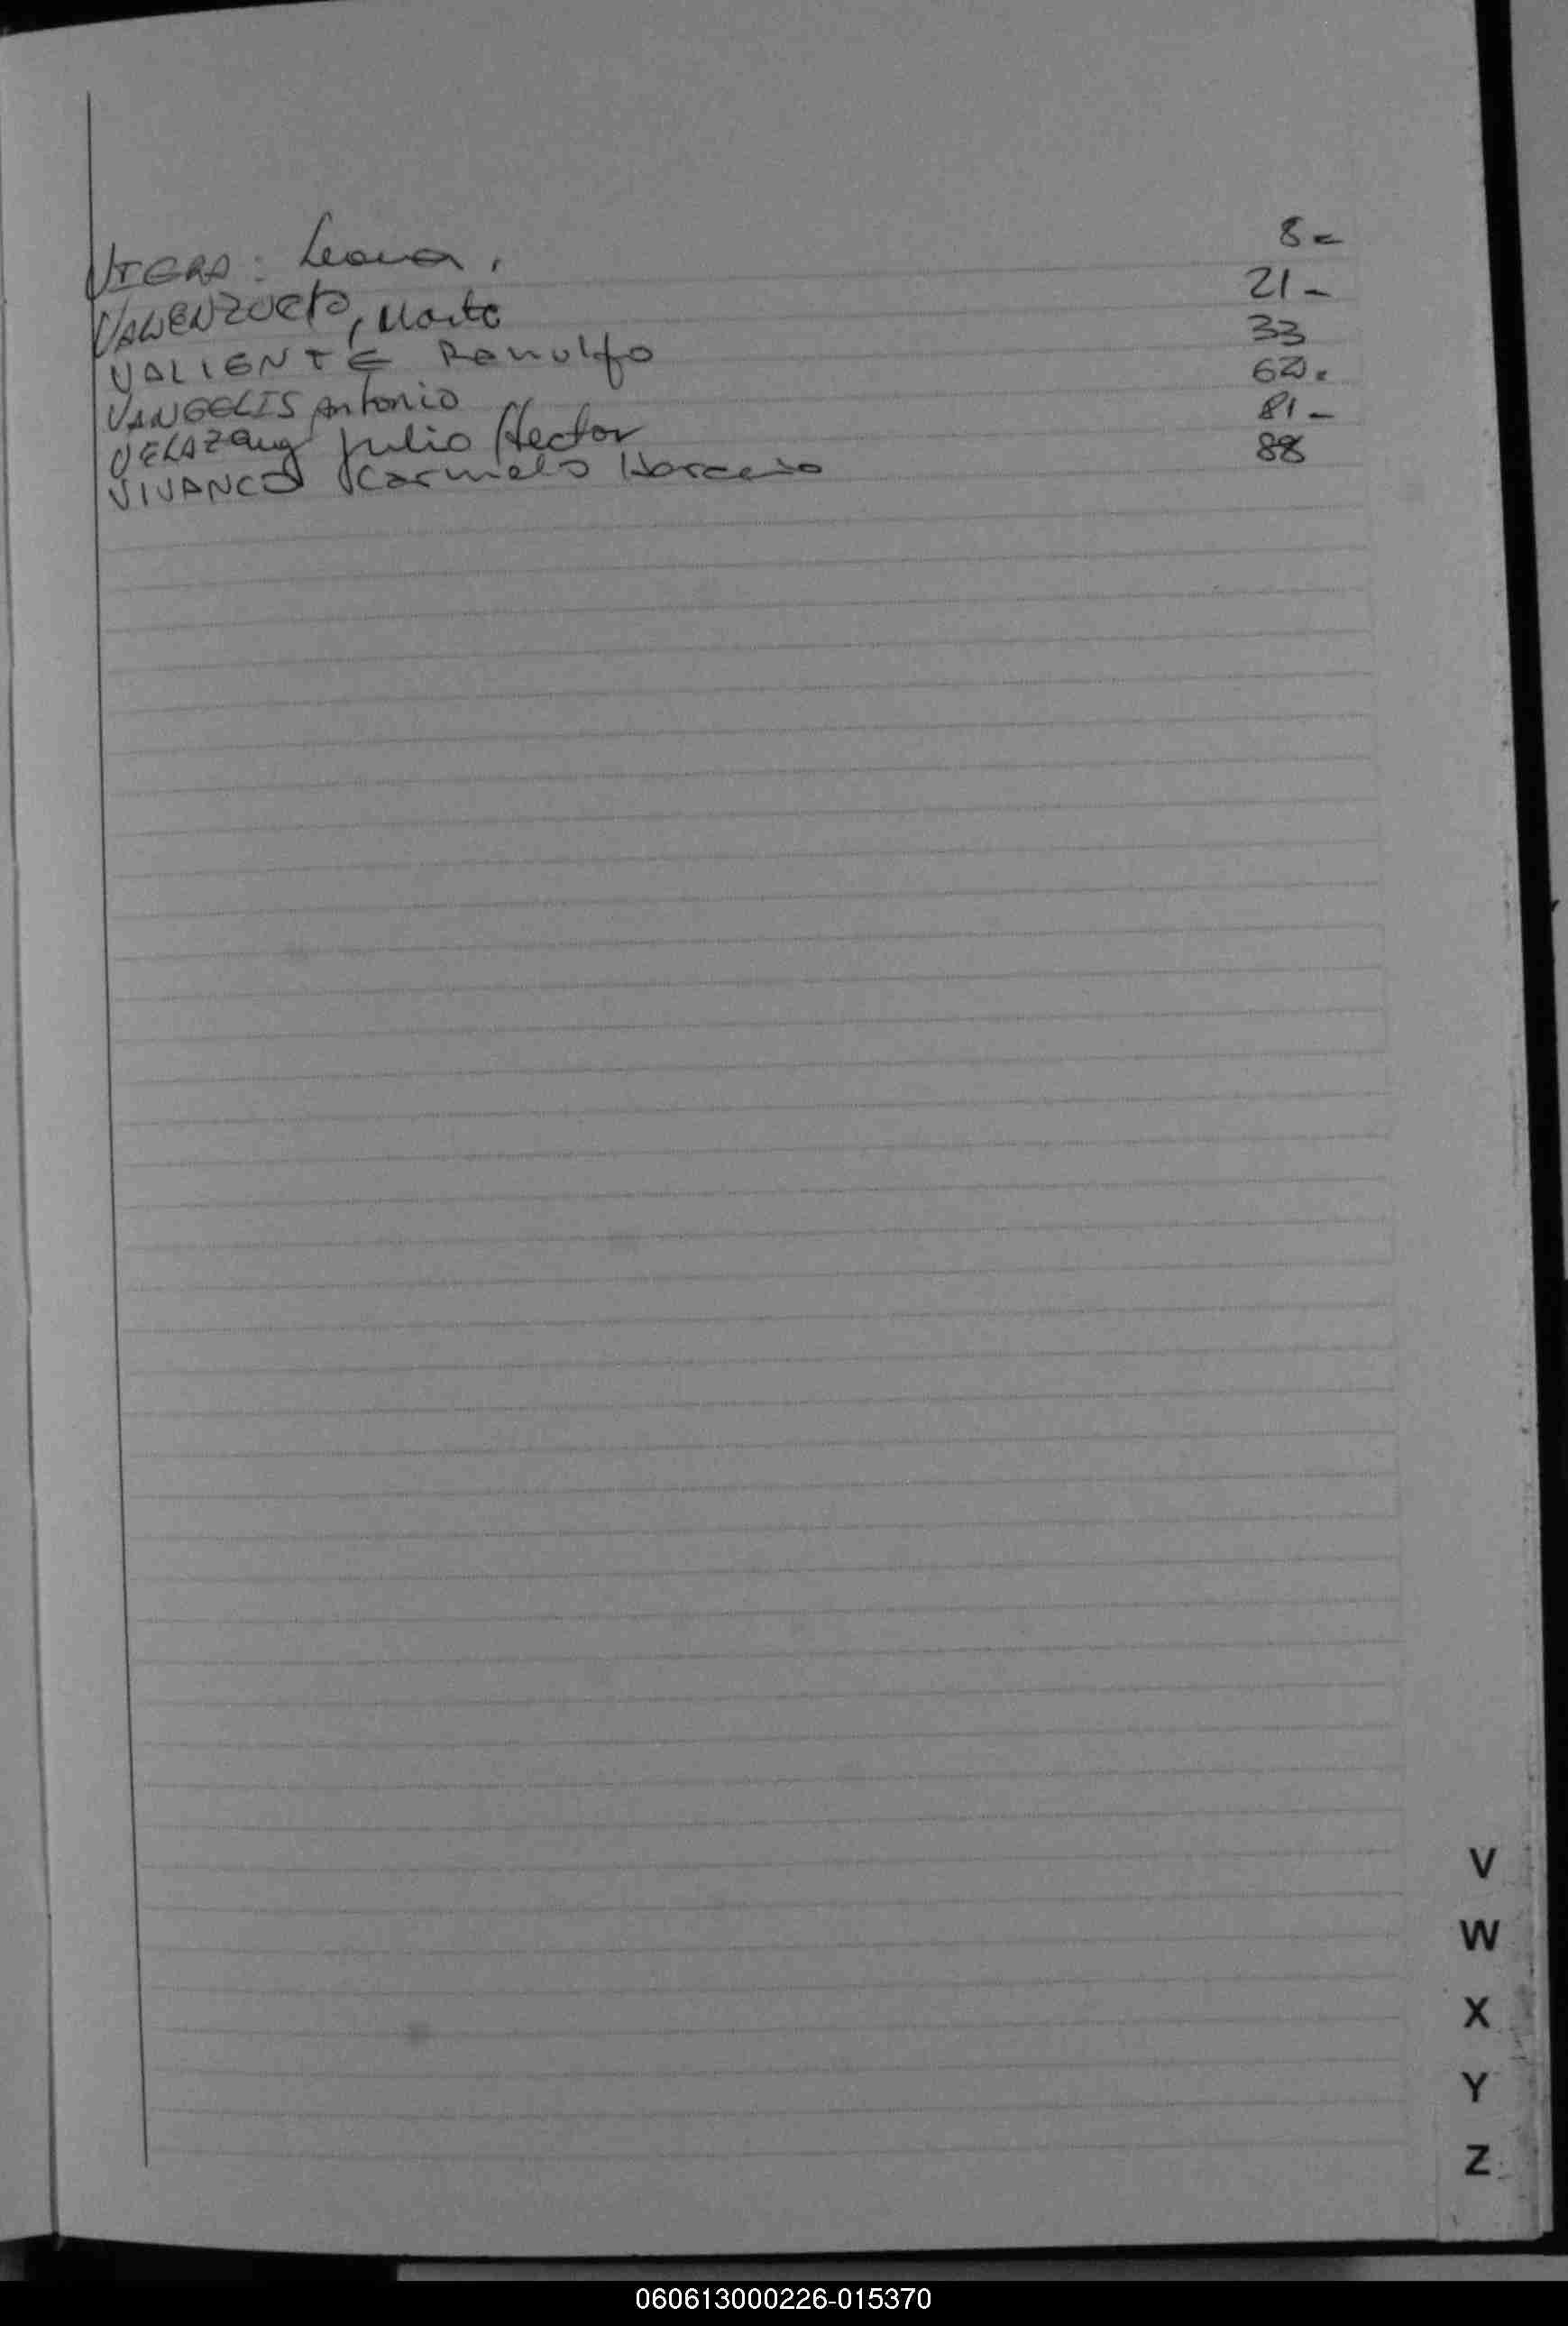 VIERA: Leona. 8=
VALENZUELA, Marta 21-
VALIENTE Ranulfo 33
VANGELIS Antonio 62.
VELAZquez Julio Hector 81-
VIVANCO Carmelo 88
V
W
X
Y
Z
060613000226-015370